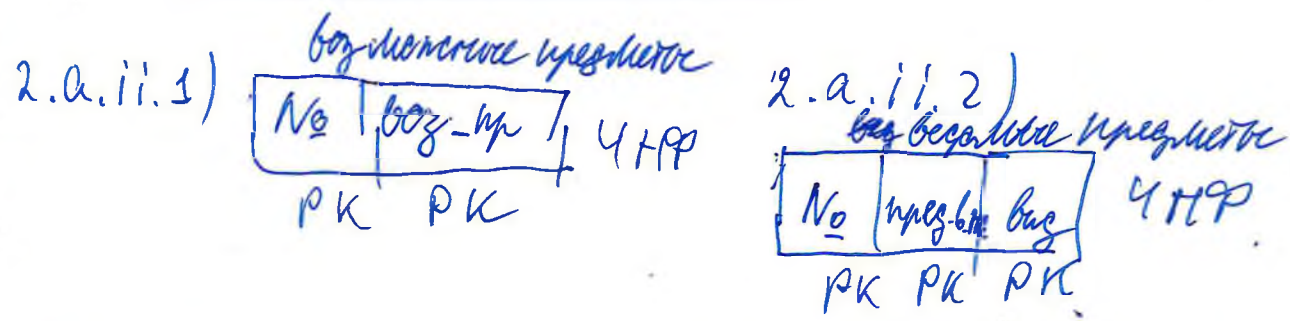 2.a.ii.1) возможные предметы
№ воз_пр 4НФ
PK PK
2.a.ii.2)
ведомые предметы
№ вид 4НФ
PK PK PK